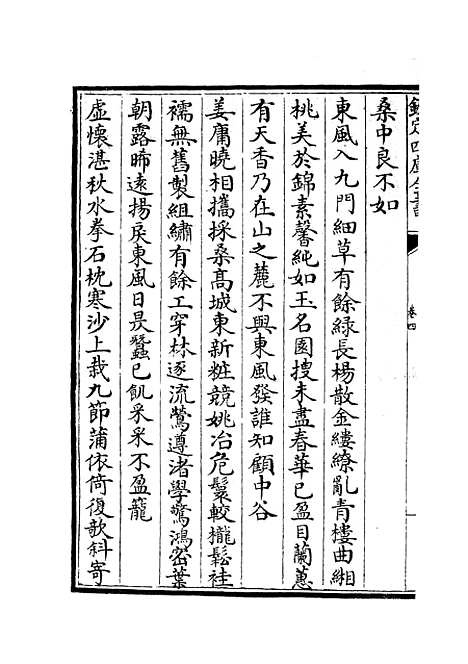 欽定四庫全書
卷四
桑中良不如
東風入九門細草有餘緑長楊散金縷繚亂青樓曲緗
桃美於錦素馨純如玉名園搜未盡春華已盈目蘭蕙
有天香乃在山之麓不與東風發誰知顧中谷
姜庸曉相攜採桑髙城東新粧競姚冶危鬟較攏鬆袿
襦無舊製組繡有餘工穿林逐流鶯遵渚學驚鴻宻葉
朝露晞逺揚戾東風日昃蠶已飢采采不盈籠
虚懷湛秋水拳石枕寒沙上栽九節蒲依倚復欹斜寄